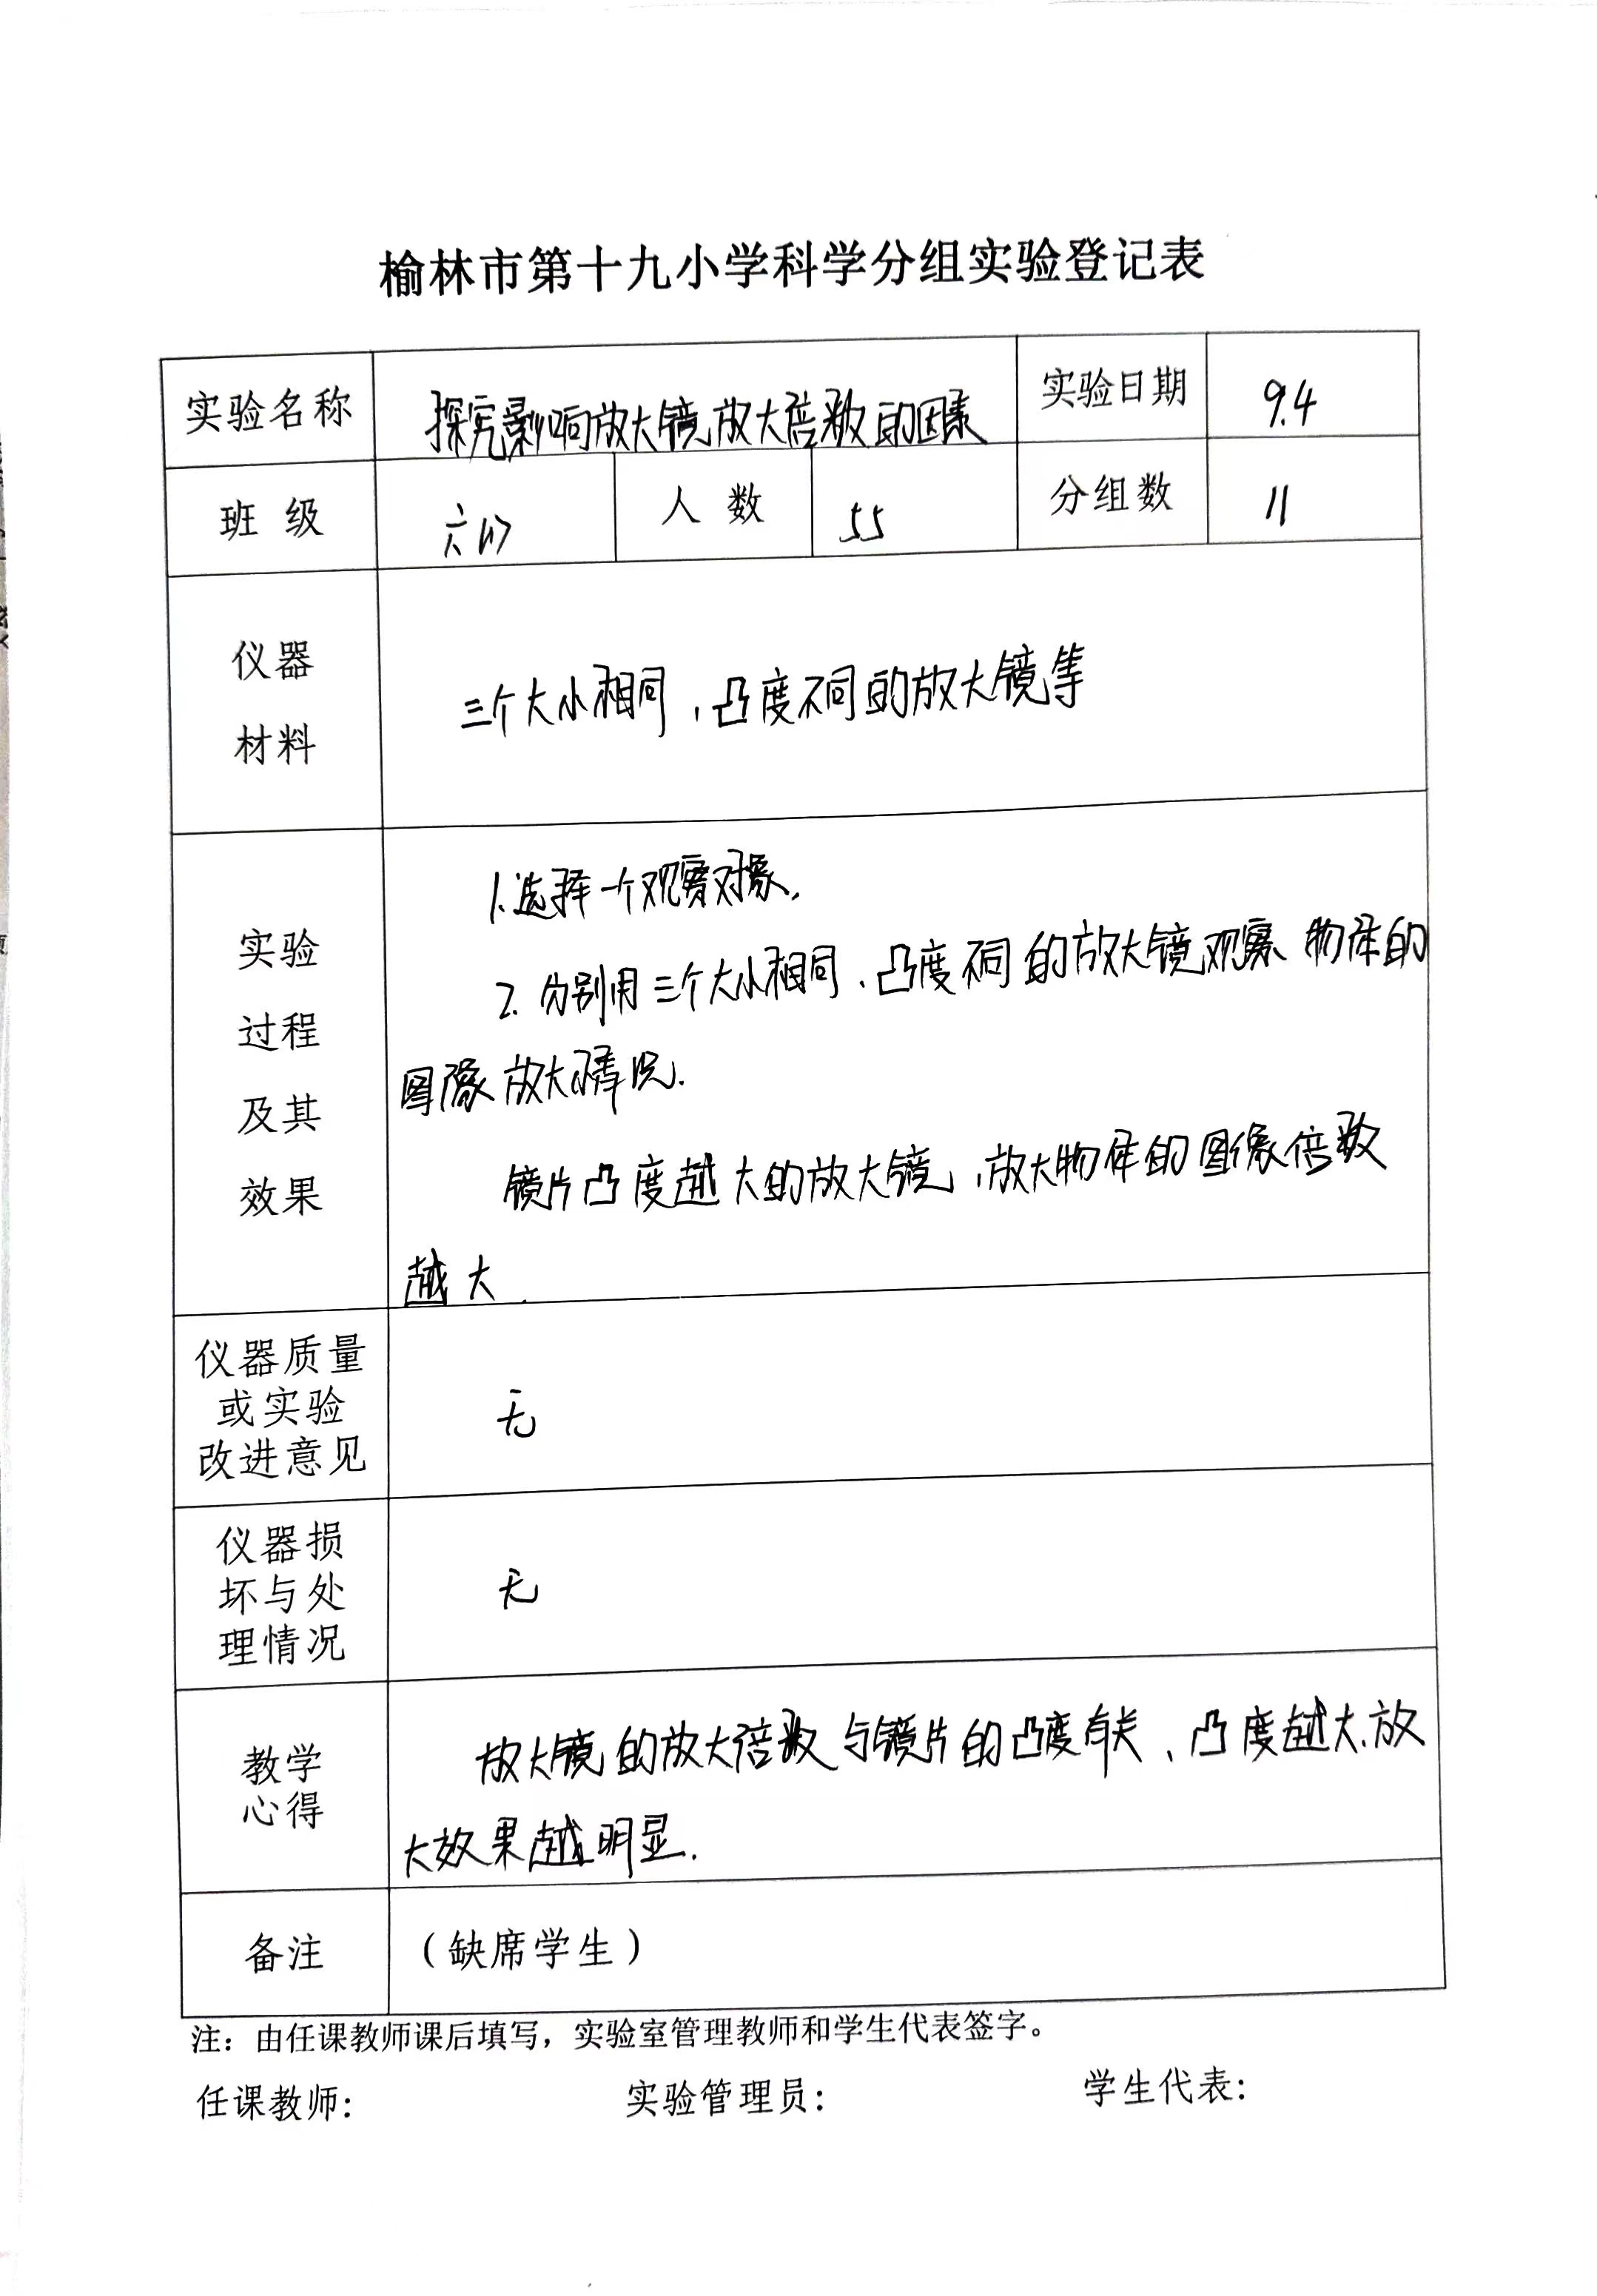 榆林市第十九小学科学分组实验登记表
实验名称 探究影响放大镜放大倍数的因素 实验日期 9.4
班 级 六(1) 人 数 55 分组数 11
仪器
材料
三个大小相同,凸度不同的放大镜等
实验
过程
及其
效果
1.选择一个观察对象.
2.分别用三个大小相同、凸度不同的放大镜观察物体的
图像放大情况.
镜片凸度越大的放大镜,放大物体的图像倍数
越大.
仪器质量
或实验
改进意见
无
仪器损
坏与处
理情况
无
教学
心得
放大镜的放大倍数与镜片的凸度有关、凸度越大.放
大效果越明显.
备注 (缺席学生)
注:由任课教师课后填写,实验室管理教师和学生代表签字。
任课教师: 实验管理员: 学生代表: